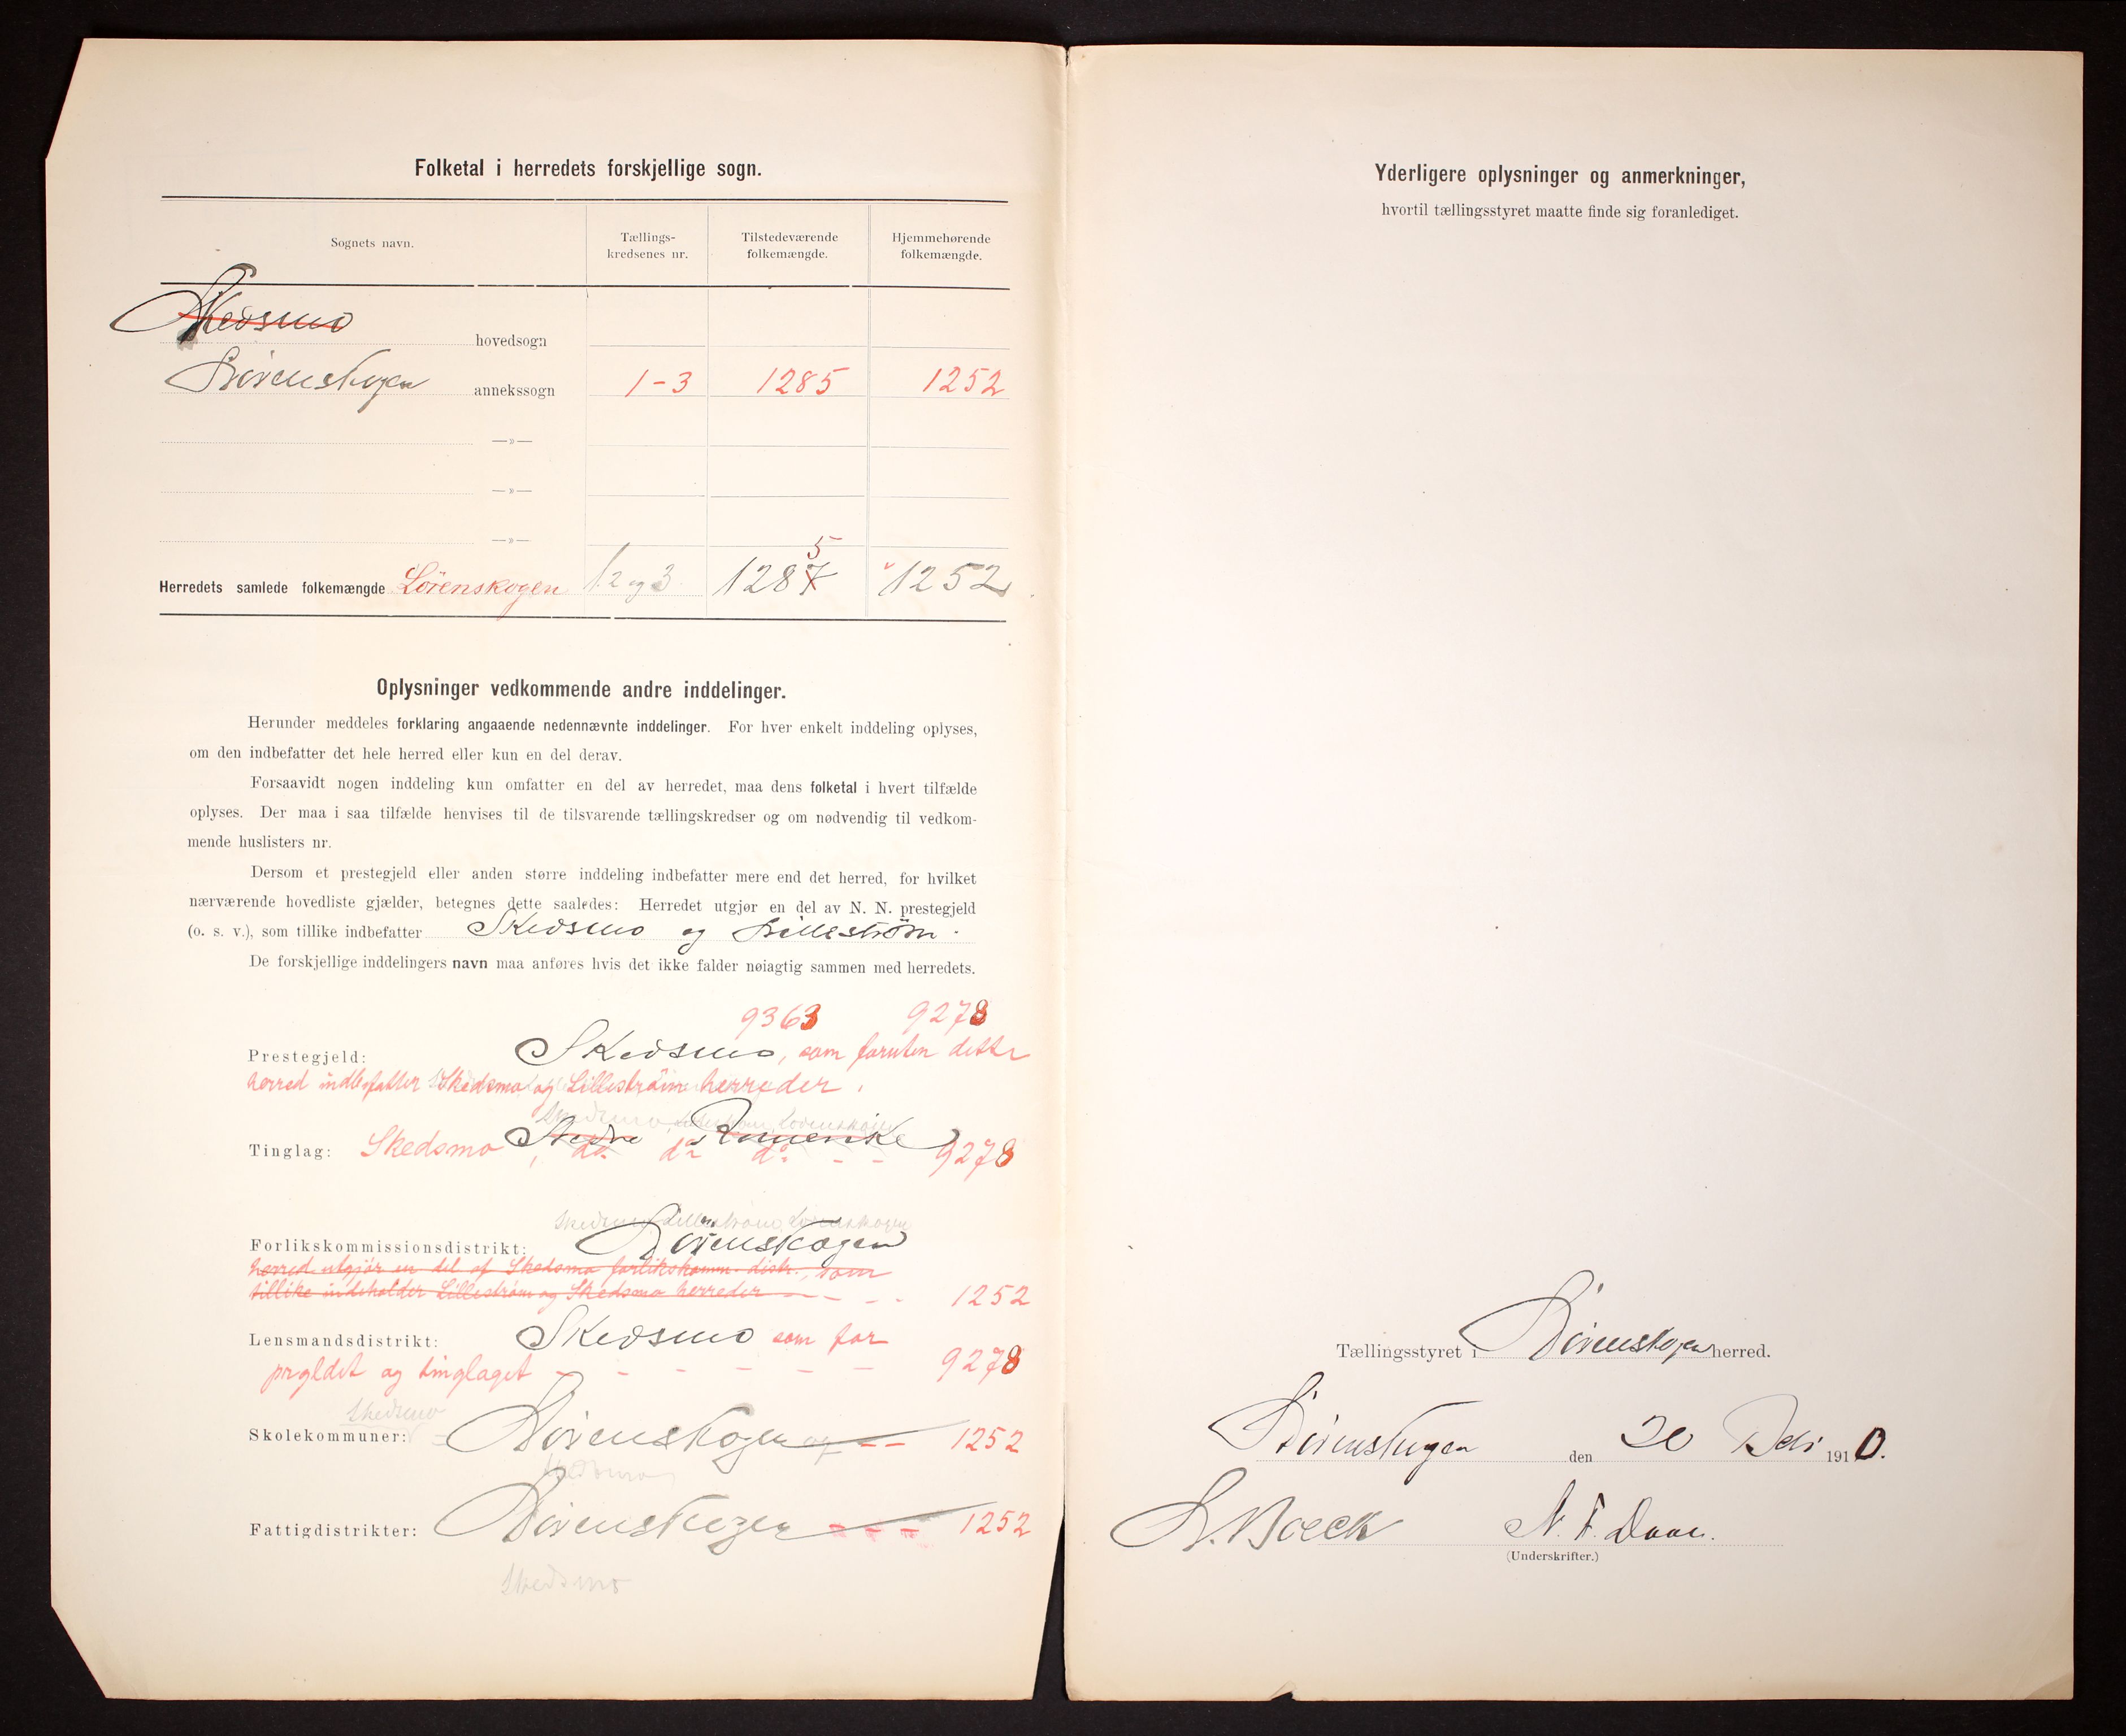 Folketal i herredets forskjellige sogn.
Sognets navn.
Tællings-
kredsenes nr.
Tilstedeværende
folkemængde.
Hjemmehørende
folkemængde.
Skedsmo hovedsogn
Lørenskogen annekssogn 1-3 1285 1252
—»—
—»—
—»—
5
Herredets samlede folkemængde Lørenskogen 1. 2 og 3 1287 1252
Oplysninger vedkommende andre inddelinger.
Herunder meddeles forklaring angaaende nedennævnte inddelinger. For hver enkelt inddeling oplyses,
om den indbefatter det hele herred eller kun en del derav.
Forsaavidt nogen inddeling kun omfatter en del av herredet, maa dens folketal i hvert tilfælde
oplyses. Der maa i saa tilfælde henvises til de tilsvarende tællingskredser og om nødvendig til vedkom-
mende huslisters nr.
Dersom et prestegjeld eller anden større inddeling indbefatter mere end det herred, for hvilket
nærværende hovedliste gjælder, betegnes dette saaledes: Herredet utgjør en del av N. N. prestegjeld
(o. s. v.), som tillike indbefatter Skedsmo og Lillestrøm.
De forskjellige inddelingers navn maa anføres hvis det ikke falder nøiagtig sammen med herredets.
9363 9278
Prestegjeld: Skedsmo, som foruten dette
herred indbefatter Skedsmo og Lillestrøm herreder.
Skedsmo, Lillestrøm, Lørenskogen
Nedre Romerike
Tinglag: Skedsmo, do do do - - 9278
Skedsmo, Lillestrøm, Lørenskogen
Forlikskommissionsdistrikt: Lørenskogen
herred utgjør en del af Skedsmo forlikskomm. distr., som
tillike indeholder Lillestrøm og Skedsmo herreder - - - - 1252
Lensmandsdistrikt: Skedsmo som for
prgldet og tinglaget - - - - - - 9278
Skedsmo
Skolekommuner: Lørenskogen og - - 1252
Skedsmo
Fattigdistrikter: Lørenskogen - - - 1252
Skedsmo
Yderligere oplysninger og anmerkninger,
hvortil tællingsstyret maatte finde sig foranlediget.
Tællingsstyret i Lørenskogen herred.
Lørenskogen den 20 Dcbr 1910.
Boeck N. F. Daae.
(Underskrifter.)